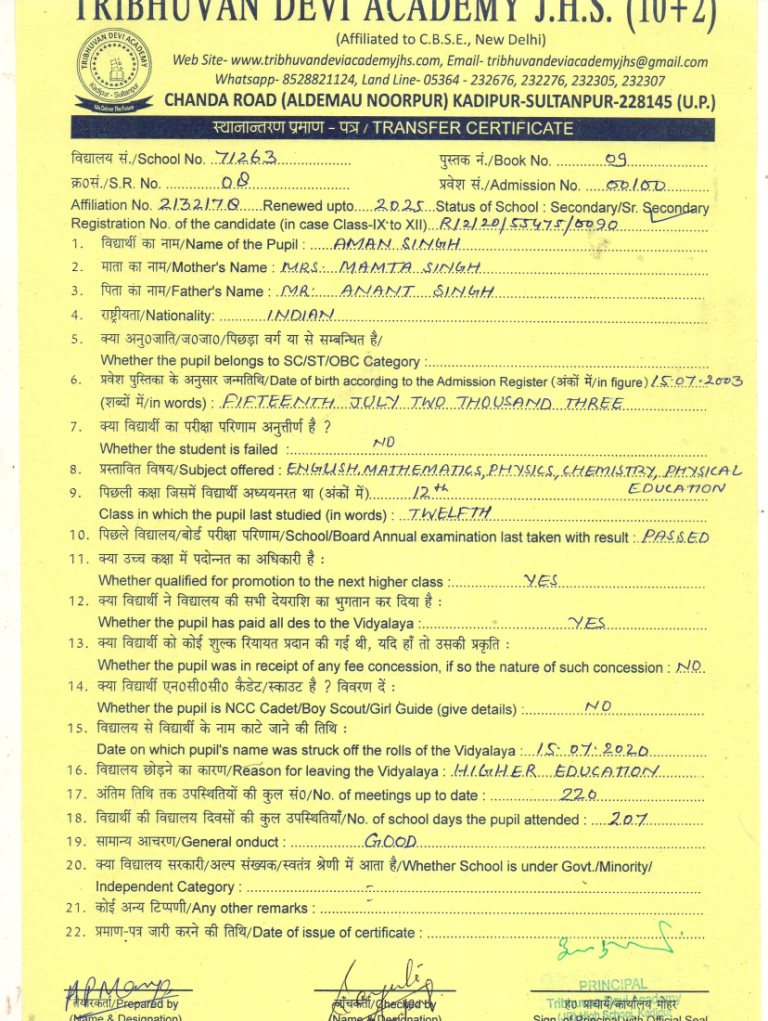 TRIBHUVAN DEVI ACADEMY J.H.S. (10+2)
(Affiliated to C.B.S.E., New Delhi)
Web Site- www.tribhuvandeviacademyjhs.com, Email- tribhuvandeviacademyjhs@gmail.com
Whatsapp- 8528821124, Land Line- 05364 - 232676, 232276, 232305, 232307
CHANDA ROAD (ALDEMAU NOORPUR) KADIPUR-SULTANPUR-228145 (U.P.)
TRIBHUVAN DEVI ACADEMY
Kadipur - Sultanpur
We Deliver The Future
स्थानान्तरण प्रमाण - पत्र / TRANSFER CERTIFICATE
विद्यालय सं./School No. 71263 पुस्तक नं./Book No. 09
क्र०सं./S.R. No. 08 प्रवेश सं./Admission No. 00/00
Affiliation No. 2132178 Renewed upto 2025 Status of School : Secondary/Sr. Secondary
Registration No. of the candidate (in case Class-IX to XII) R/2/20/55475/0090
1. विद्यार्थी का नाम/Name of the Pupil : AMAN SINGH
2. माता का नाम/Mother's Name : MRS. MAMTA SINGH
3. पिता का नाम/Father's Name : MR. ANANT SINGH
4. राष्ट्रीयता/Nationality: INDIAN
5. क्या अनु०जाति/ज०जा०/पिछड़ा वर्ग या से सम्बन्धित है/
Whether the pupil belongs to SC/ST/OBC Category :
6. प्रवेश पुस्तिका के अनुसार जन्मतिथि/Date of birth according to the Admission Register (अंकों में/in figure) 15.07.2003
(शब्दों में/in words) : FIFTEENTH JULY TWO THOUSAND THREE
7. क्या विद्यार्थी का परीक्षा परिणाम अनुत्तीर्ण है ?
Whether the student is failed : NO
8. प्रस्तावित विषय/Subject offered : ENGLISH, MATHEMATICS, PHYSICS, CHEMISTRY, PHYSICAL
EDUCATION
9. पिछली कक्षा जिसमें विद्यार्थी अध्ययनरत था (अंकों में) 12th
Class in which the pupil last studied (in words) : TWELFTH
10. पिछले विद्यालय/बोर्ड परीक्षा परिणाम/School/Board Annual examination last taken with result : PASSED
11. क्या उच्च कक्षा में पदोन्नत का अधिकारी है :
Whether qualified for promotion to the next higher class : YES
12. क्या विद्यार्थी ने विद्यालय की सभी देयराशि का भुगतान कर दिया है :
Whether the pupil has paid all des to the Vidyalaya : YES
13. क्या विद्यार्थी को कोई शुल्क रियायत प्रदान की गई थी, यदि हाँ तो उसकी प्रकृति :
Whether the pupil was in receipt of any fee concession, if so the nature of such concession : NO
14. क्या विद्यार्थी एन०सी०सी० कैडेट/स्काउट है ? विवरण दें :
Whether the pupil is NCC Cadet/Boy Scout/Girl Guide (give details) : NO
15. विद्यालय से विद्यार्थी के नाम काटे जाने की तिथि :
Date on which pupil's name was struck off the rolls of the Vidyalaya : 15.07.2020
16. विद्यालय छोड़ने का कारण/Reason for leaving the Vidyalaya : HIGHER EDUCATION
17. अंतिम तिथि तक उपस्थितियों की कुल सं०/No. of meetings up to date : 220
18. विद्यार्थी की विद्यालय दिवसों की कुल उपस्थितियाँ/No. of school days the pupil attended : 207
19. सामान्य आचरण/General onduct : GOOD
20. क्या विद्यालय सरकारी/अल्प संख्यक/स्वतंत्र श्रेणी में आता है/Whether School is under Govt./Minority/
Independent Category : -
21. कोई अन्य टिप्पणी/Any other remarks : -
22. प्रमाण-पत्र जारी करने की तिथि/Date of issue of certificate :
PRINCIPAL
Tribhuvan Devi Academy
तैयारकर्ता/Prepared by जाँचकर्ता/Checked by ह० प्राचार्य/कार्यालय मोहर
(J.H) High School, Kadipur
(Name & Designation) (Name & Designation) Sign. of Principal with Official Seal